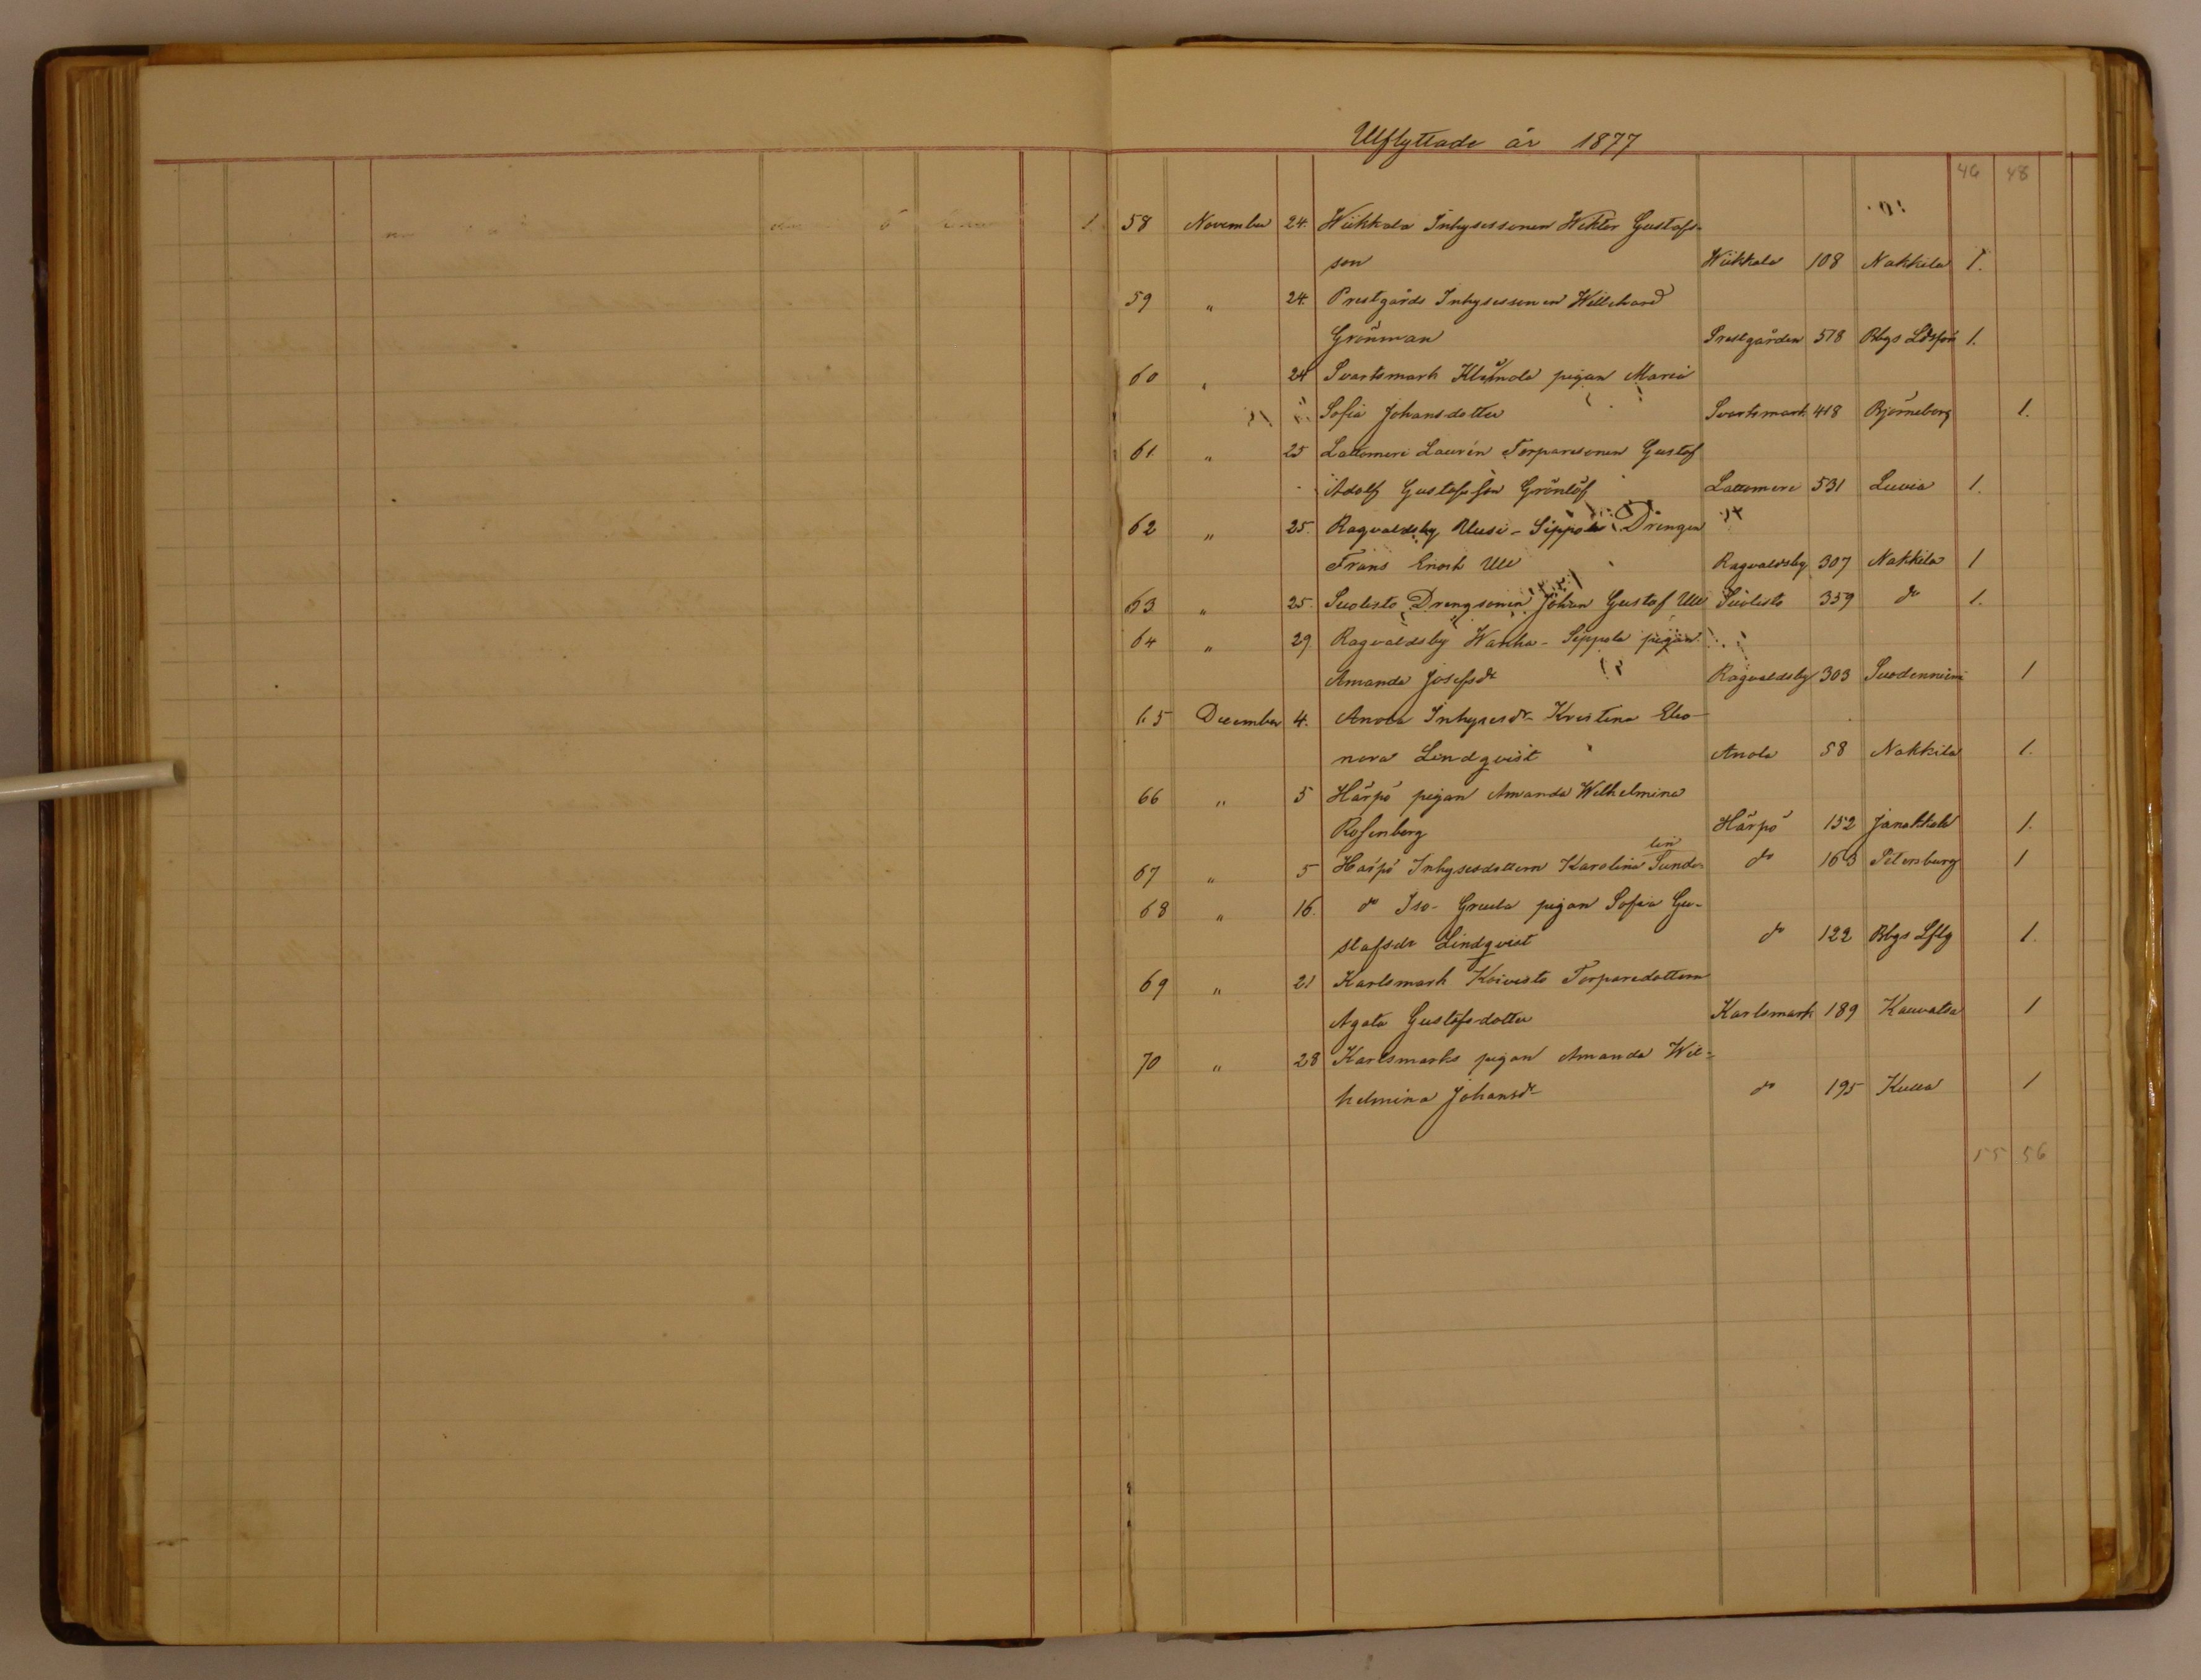 Utflyttade år 1877
46 48
58 November 24. Wiikkala Inhysessonen Wiktor Gustafs-
son Wiikkala 108 Nakkila 1.
59 " 24. Prestgårds Inhysessonen Willehard
Grönman Prestgården 578 Bbgs Ldsfön 1.
60 " 24 Svartsmark pigan Maria
Sofia Johansdotter Svartsmark 418 Björneborg 1.
61 " 25 Lattomeri Laurén Torparesonen Gustaf
Adolf Gustafsson Grönlöf Lattomeri 531 Luvia 1.
62 " 25. Ragvaldsby Uusi-Sippola Drengen
Frans Enock Ull Ragvaldsby 307 Nakkila 1
63 " 25. Suolisto Drengsonen Johan Gustaf Ull Suolisto 359 do 1.
64 " 29 Ragvaldsby Wanha-Seppola pigan
Amanda Josefsdr Ragvaldsby 303 Suodenniemi 1
65 December 4. Anola Inhysesdr Kristina Eleo-
nora Lindqvist Anola 58 Nakkila 1.
66 " 5 Härpö pigan Amanda Wilhelmina
Rosenberg Härpö 152 Janakkala 1.
lin
67 " 5 Härpö Inhysesdottern Karolina Sunde- do 163 Petersburg 1
68 " 16. do Iso-Gruula pigan Sofia Gu-
stafsdr Lindqvist do 122 Bbgs Lflg 1.
69 " 21 Karlsmark Koivisto Torparedottern
Agata Gustafsdotter Karlsmark 189 Kauvatsa 1
70 " 28 Karlsmarks pigan Amanda Wil-
helmina Johansdr do 195 Kulla 1
55 56